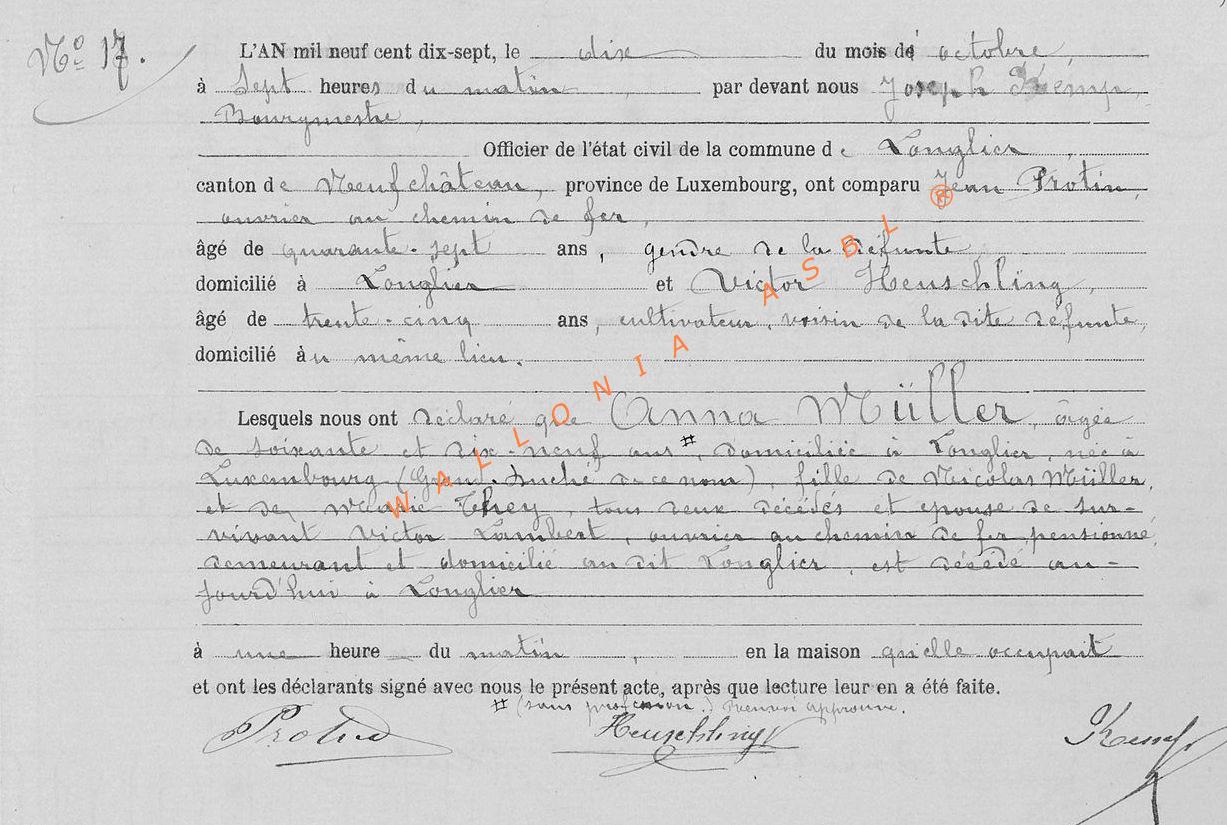 No 17.
L'AN mil neuf cent dix-sept, le dix du mois de octobre,
à sept heures du matin par devant nous Joseph Kemp,
Bourgmestre,
Officier de l'état civil de la commune de Longlier,
canton de Neufchâteau, province de Luxembourg, ont comparu Jean Protin,
ouvrier au chemin de fer,
âgé de quarante-sept ans, gendre de la défunte
domicilié à Longlier et Victor Heuschling,
âgé de trente-cinq ans, cultivateur, voisin de la dite défunte,
domicilié au même lieu.
Lesquels nous ont déclaré que Anna Müller, âgée
de soixante et dix-neuf ans #, domiciliée à Longlier, née à
Luxembourg (Grand-Duché de ce nom), fille de Nicolas Müller,
et de Marie They, tous deux décédés et épouse de sur-
vivant Victor Lambert, ouvrier au chemin de fer pensionné,
demeurant et domicilié au dit Longlier, est décédé au-
jourd'hui à Longlier
à une heure du matin, en la maison qu'elle occupait
et ont les déclarants signé avec nous le présent acte, après que lecture leur en a été faite.
# (sans profession.) renvoi approuvé.
Protin Heuschling V Kemp
WALLONIA ASBL ®